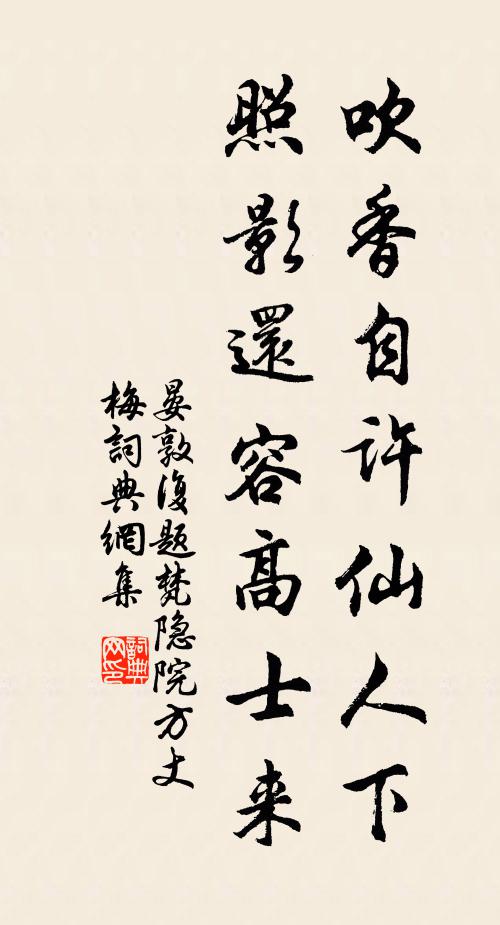 吹香自許仙人下
照影還容高士来
晏敦復題梵隐院方丈
梅詞典網集
詞典网印